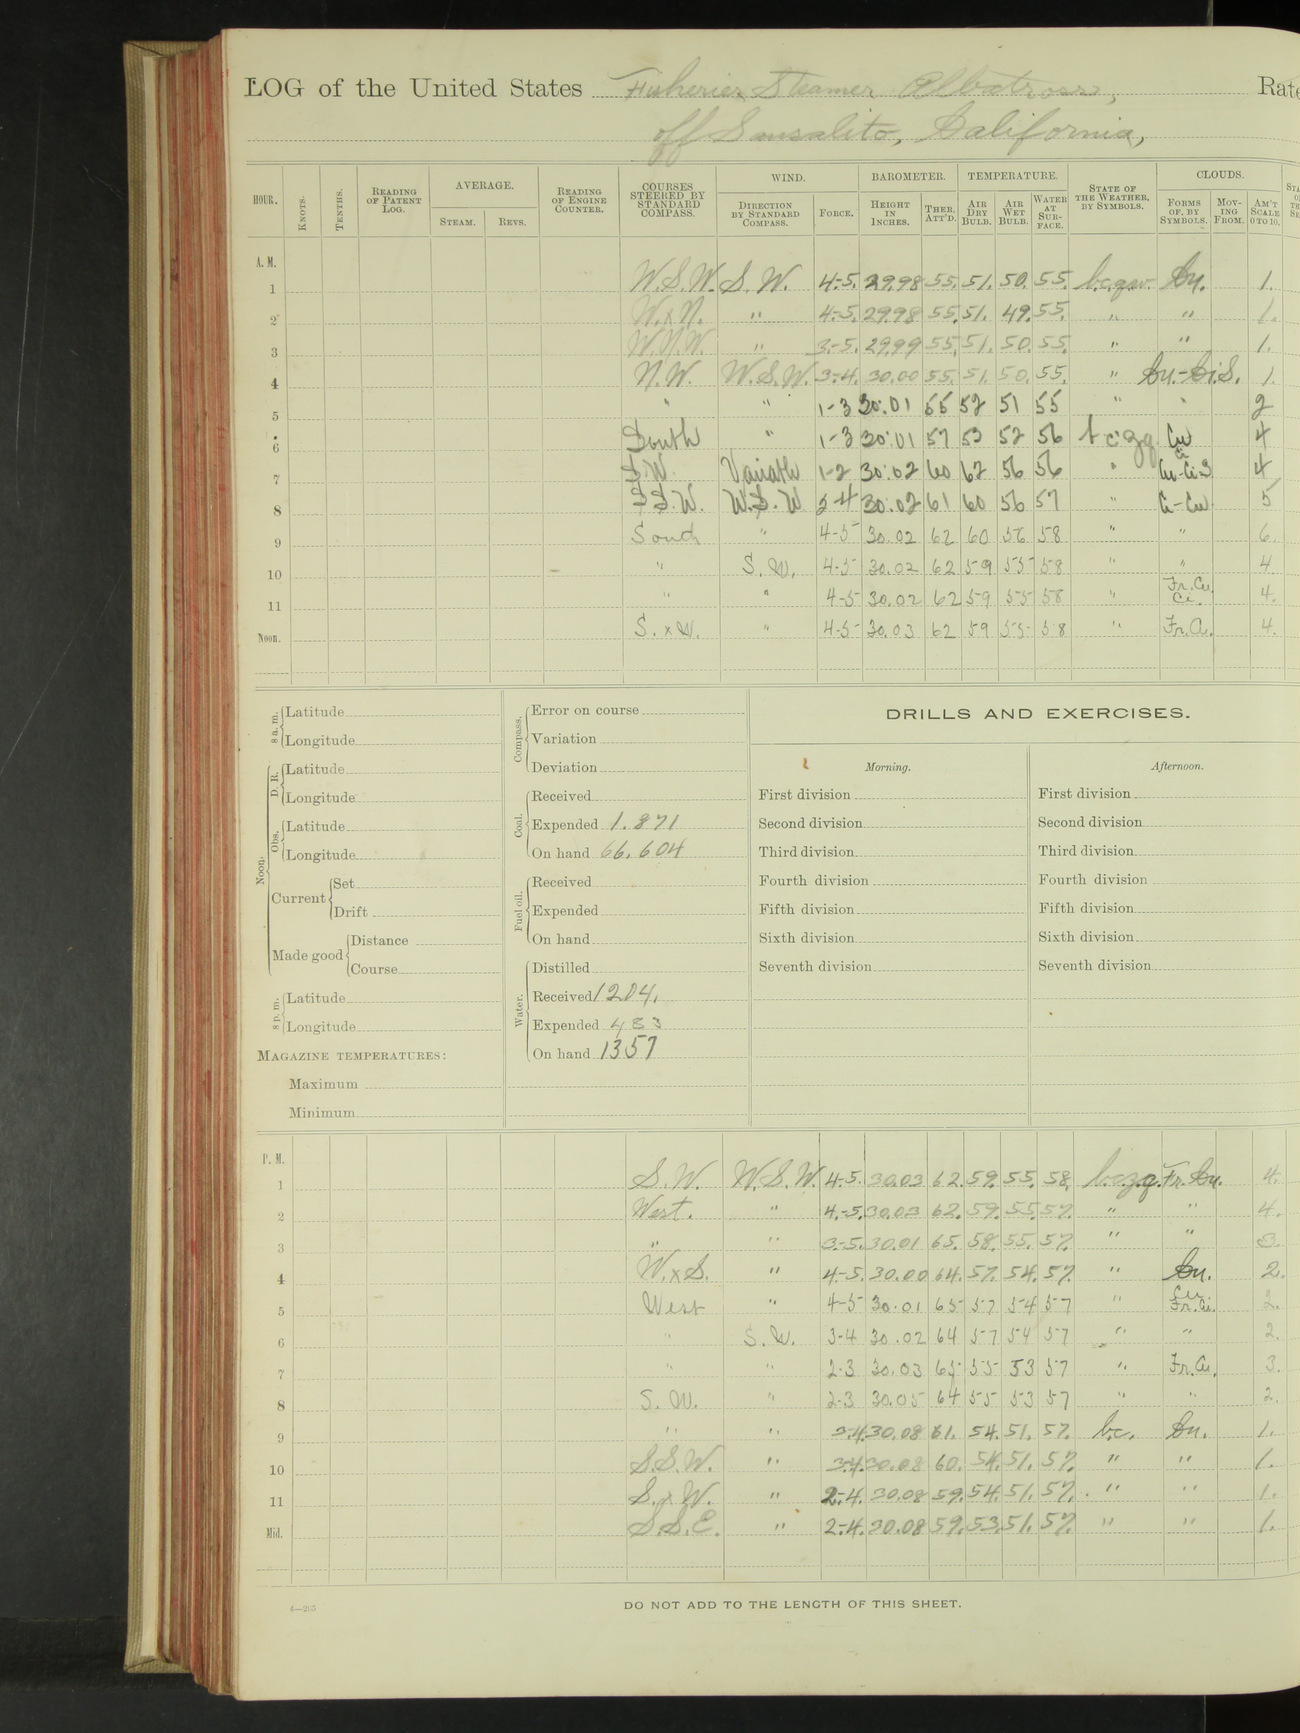 LOG of the United States Fisheries Steamer Albatross, Rate
off Sausalito, California,
HOUR. KNOTS. TENTHS. READING OF PATENT LOG. AVERAGE. STEAM. REVS. READING OF ENGINE COUNTER. COURSES STEERED BY STANDARD COMPASS. WIND. DIRECTION BY STANDARD COMPASS. FORCE. BAROMETER. HEIGHT IN INCHES. THER. ATT'D. TEMPERATURE. AIR DRY BULB. AIR WET BULB. WATER AT SURFACE. STATE OF THE WEATHER, BY SYMBOLS. CLOUDS. FORMS OF, BY SYMBOLS. MOVING FROM. AM'T SCALE 0 TO 10.
A. M.
1 W.S.W. S.W. 4-5. 29.98 55. 51. 50. 55. Cu. 1.
2 W.xN. " 4-5. 29.98 55. 51. 49. 55. " " 1.
3 W.N.W. " 3-5. 29.99 55. 51. 50. 55. " " 1.
4 N.W. W.S.W. 3-4. 30.00 55. 51. 50. 55. " Cu.-Ci.S. 1.
5 " " 1-3 30.01 55 52 51 55 " " 2
6 South " 1-3 30.01 57 53 52 56 Cu 4
7 S.W. Variable 1-2 30.02 60 62 56 56 " Cu-Ci-S 4
8 S.S.W. W.S.W 2-4 30.02 61 60 56 57 " Ci-Cu 5
9 South " 4-5 30.02 62 60 56 58 " " 6.
10 " S.W. 4-5 30.02 62 59 55 58 " " 4
11 " " 4-5 30.02 62 59 55 58 " Fr.Cu. Ci. 4.
Noon. S.xW. " 4-5 30.03 62 59 55 58 " Fr.Cu. 4.
8 a.m. Latitude
Longitude
Noon. D. R. Latitude
Longitude
Obs. Latitude
Longitude
Current Set
Drift
Made good Distance
Course
8 p.m. Latitude
Longitude
MAGAZINE TEMPERATURES:
Maximum
Minimum
Compass. Error on course
Variation
Deviation
Coal. Received
Expended 1.871
On hand 66.604
Fuel oil. Received
Expended
On hand
Water. Distilled
Received 1204.
Expended 483
On hand 1357
DRILLS AND EXERCISES.
Morning. Afternoon.
First division First division
Second division Second division
Third division Third division
Fourth division Fourth division
Fifth division Fifth division
Sixth division Sixth division
Seventh division Seventh division
P. M.
1 S.W. W.S.W. 4-5. 30.03 62. 59. 55. 58. b.c.z.q. Fr.Cu. 4.
2 West. " 4-5. 30.03 62. 59. 55. 57. " " 4.
3 " " 3-5. 30.01 65. 58. 55. 57. " " 3.
4 W.xS. " 4-5. 30.00 64. 57. 54. 57. " Cu. 2.
5 West " 4-5 30.01 65 57 54 57 " Cu. Fr.Ci. 2.
6 " S.W. 3-4 30.02 64 57 54 57 " " 2.
7 " " 2-3 30.03 65 55 53 57 " Fr.Cu. 3.
8 S.W. " 2-3 30.05 64 55 53 57 " " 2.
9 " " 3-4. 30.08 61. 54. 51. 57. b.c. Cu. 1.
10 S.S.W. " 3-4. 30.08 60. 54. 51. 57. " " 1.
11 S.xW. " 2-4. 30.08 59. 54. 51. 57. " " 1.
Mid. S.S.E. " 2-4. 30.08 59. 53. 51. 57. " " 1.
DO NOT ADD TO THE LENGTH OF THIS SHEET.